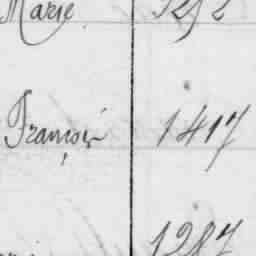 Marie 1272
François 1417
1287